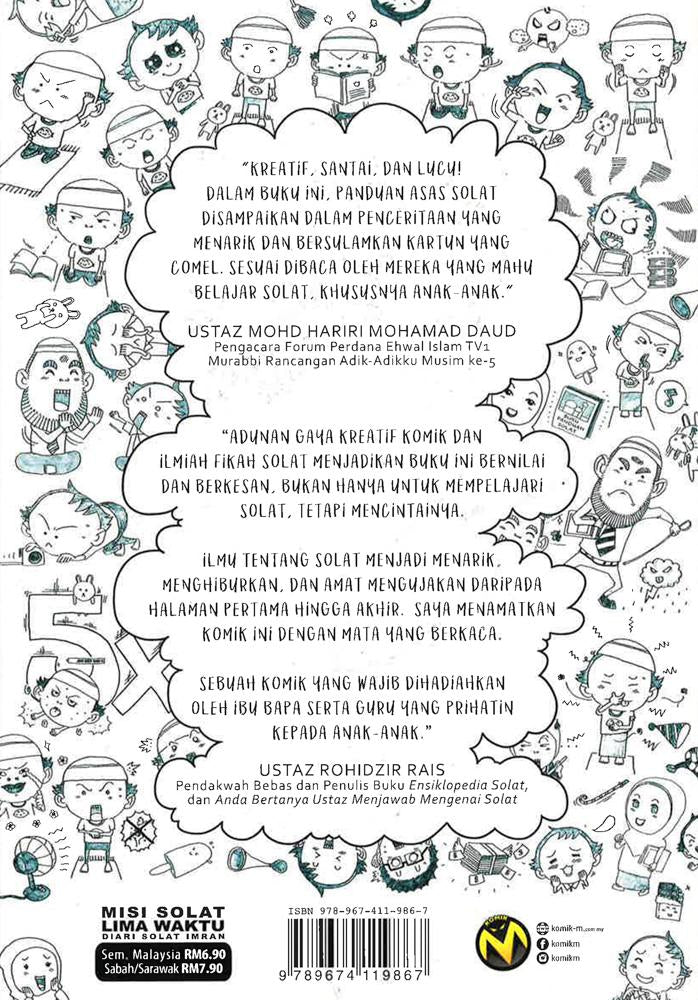 "KREATIF, SANTAI, DAN LUCU!
DALAM BUKU INI, PANDUAN ASAS SOLAT
DISAMPAIKAN DALAM PENCERITAAN YANG
MENARIK DAN BERSULAMKAN KARTUN YANG
COMEL. SESUAI DIBACA OLEH MEREKA YANG MAHU
BELAJAR SOLAT, KHUSUSNYA ANAK-ANAK."
USTAZ MOHD HARIRI MOHAMAD DAUD
Pengacara Forum Perdana Ehwal Islam TV1
Murabbi Rancangan Adik-Adikku Musim ke-5
"ADUNAN GAYA KREATIF KOMIK DAN
ILMIAH FIKAH SOLAT MENJADIKAN BUKU INI BERNILAI
DAN BERKESAN, BUKAN HANYA UNTUK MEMPELAJARI
SOLAT, TETAPI MENCINTAINYA.
ILMU TENTANG SOLAT MENJADI MENARIK,
MENGHIBURKAN, DAN AMAT MENGUJAKAN DARIPADA
HALAMAN PERTAMA HINGGA AKHIR. SAYA MENAMATKAN
KOMIK INI DENGAN MATA YANG BERKACA.
5X
SEBUAH KOMIK YANG WAJIB DIHADIAHKAN
OLEH IBU BAPA SERTA GURU YANG PRIHATIN
KEPADA ANAK-ANAK."
USTAZ ROHIDZIR RAIS
Pendakwah Bebas dan Penulis Buku Ensiklopedia Solat,
dan Anda Bertanya Ustaz Menjawab Mengenai Solat
MISI SOLAT
LIMA WAKTU
DIARI SOLAT IMRAN
Sem. Malaysia RM6.90
Sabah/Sarawak RM7.90
ISBN 978-967-411-986-7
9 789674 119867
KOMIK
M
komik-m.com.my
komikm
komikm